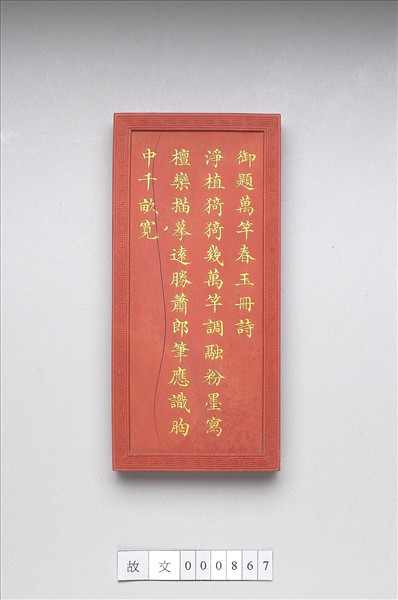 御題萬竿春玉冊詩
淨植猗猗幾萬竿調融粉墨寫
檀欒描摹遠勝蕭郎筆應識胸
中千畝寬
故文000867